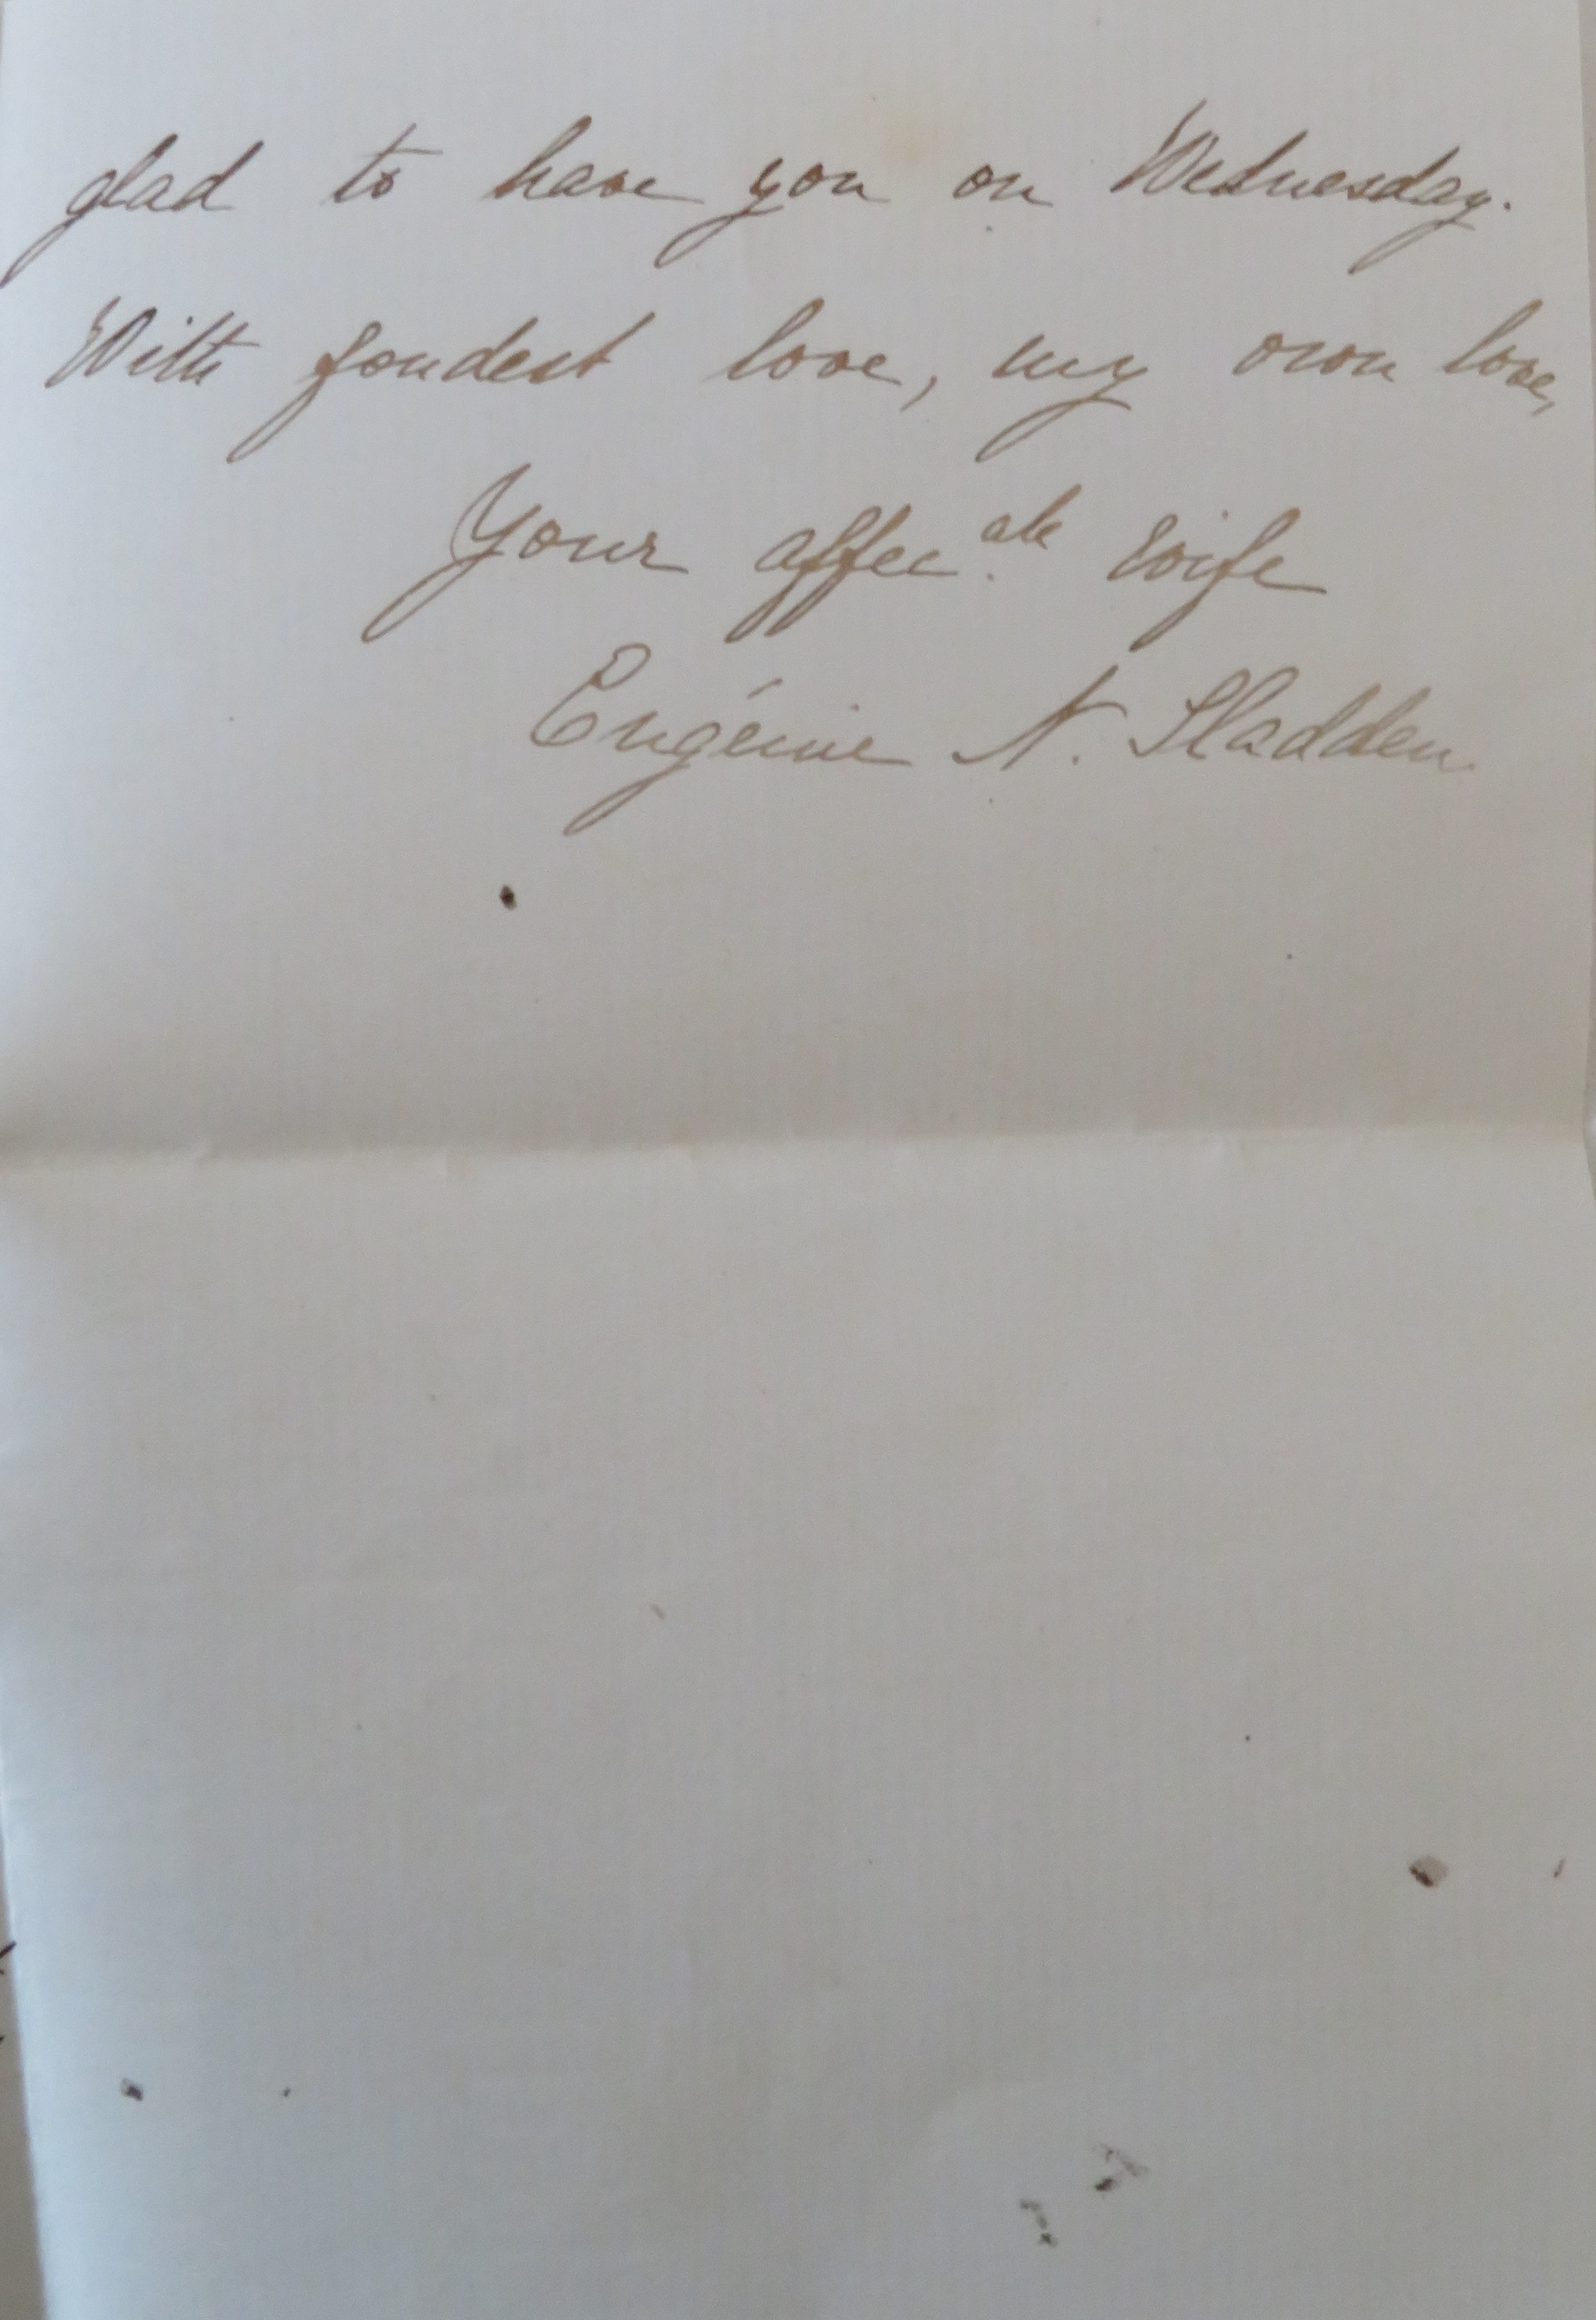 glad to have you on Wednesday.
With fondest love, my own love,
Your affec.ate wife
Eugénie N. Sladden